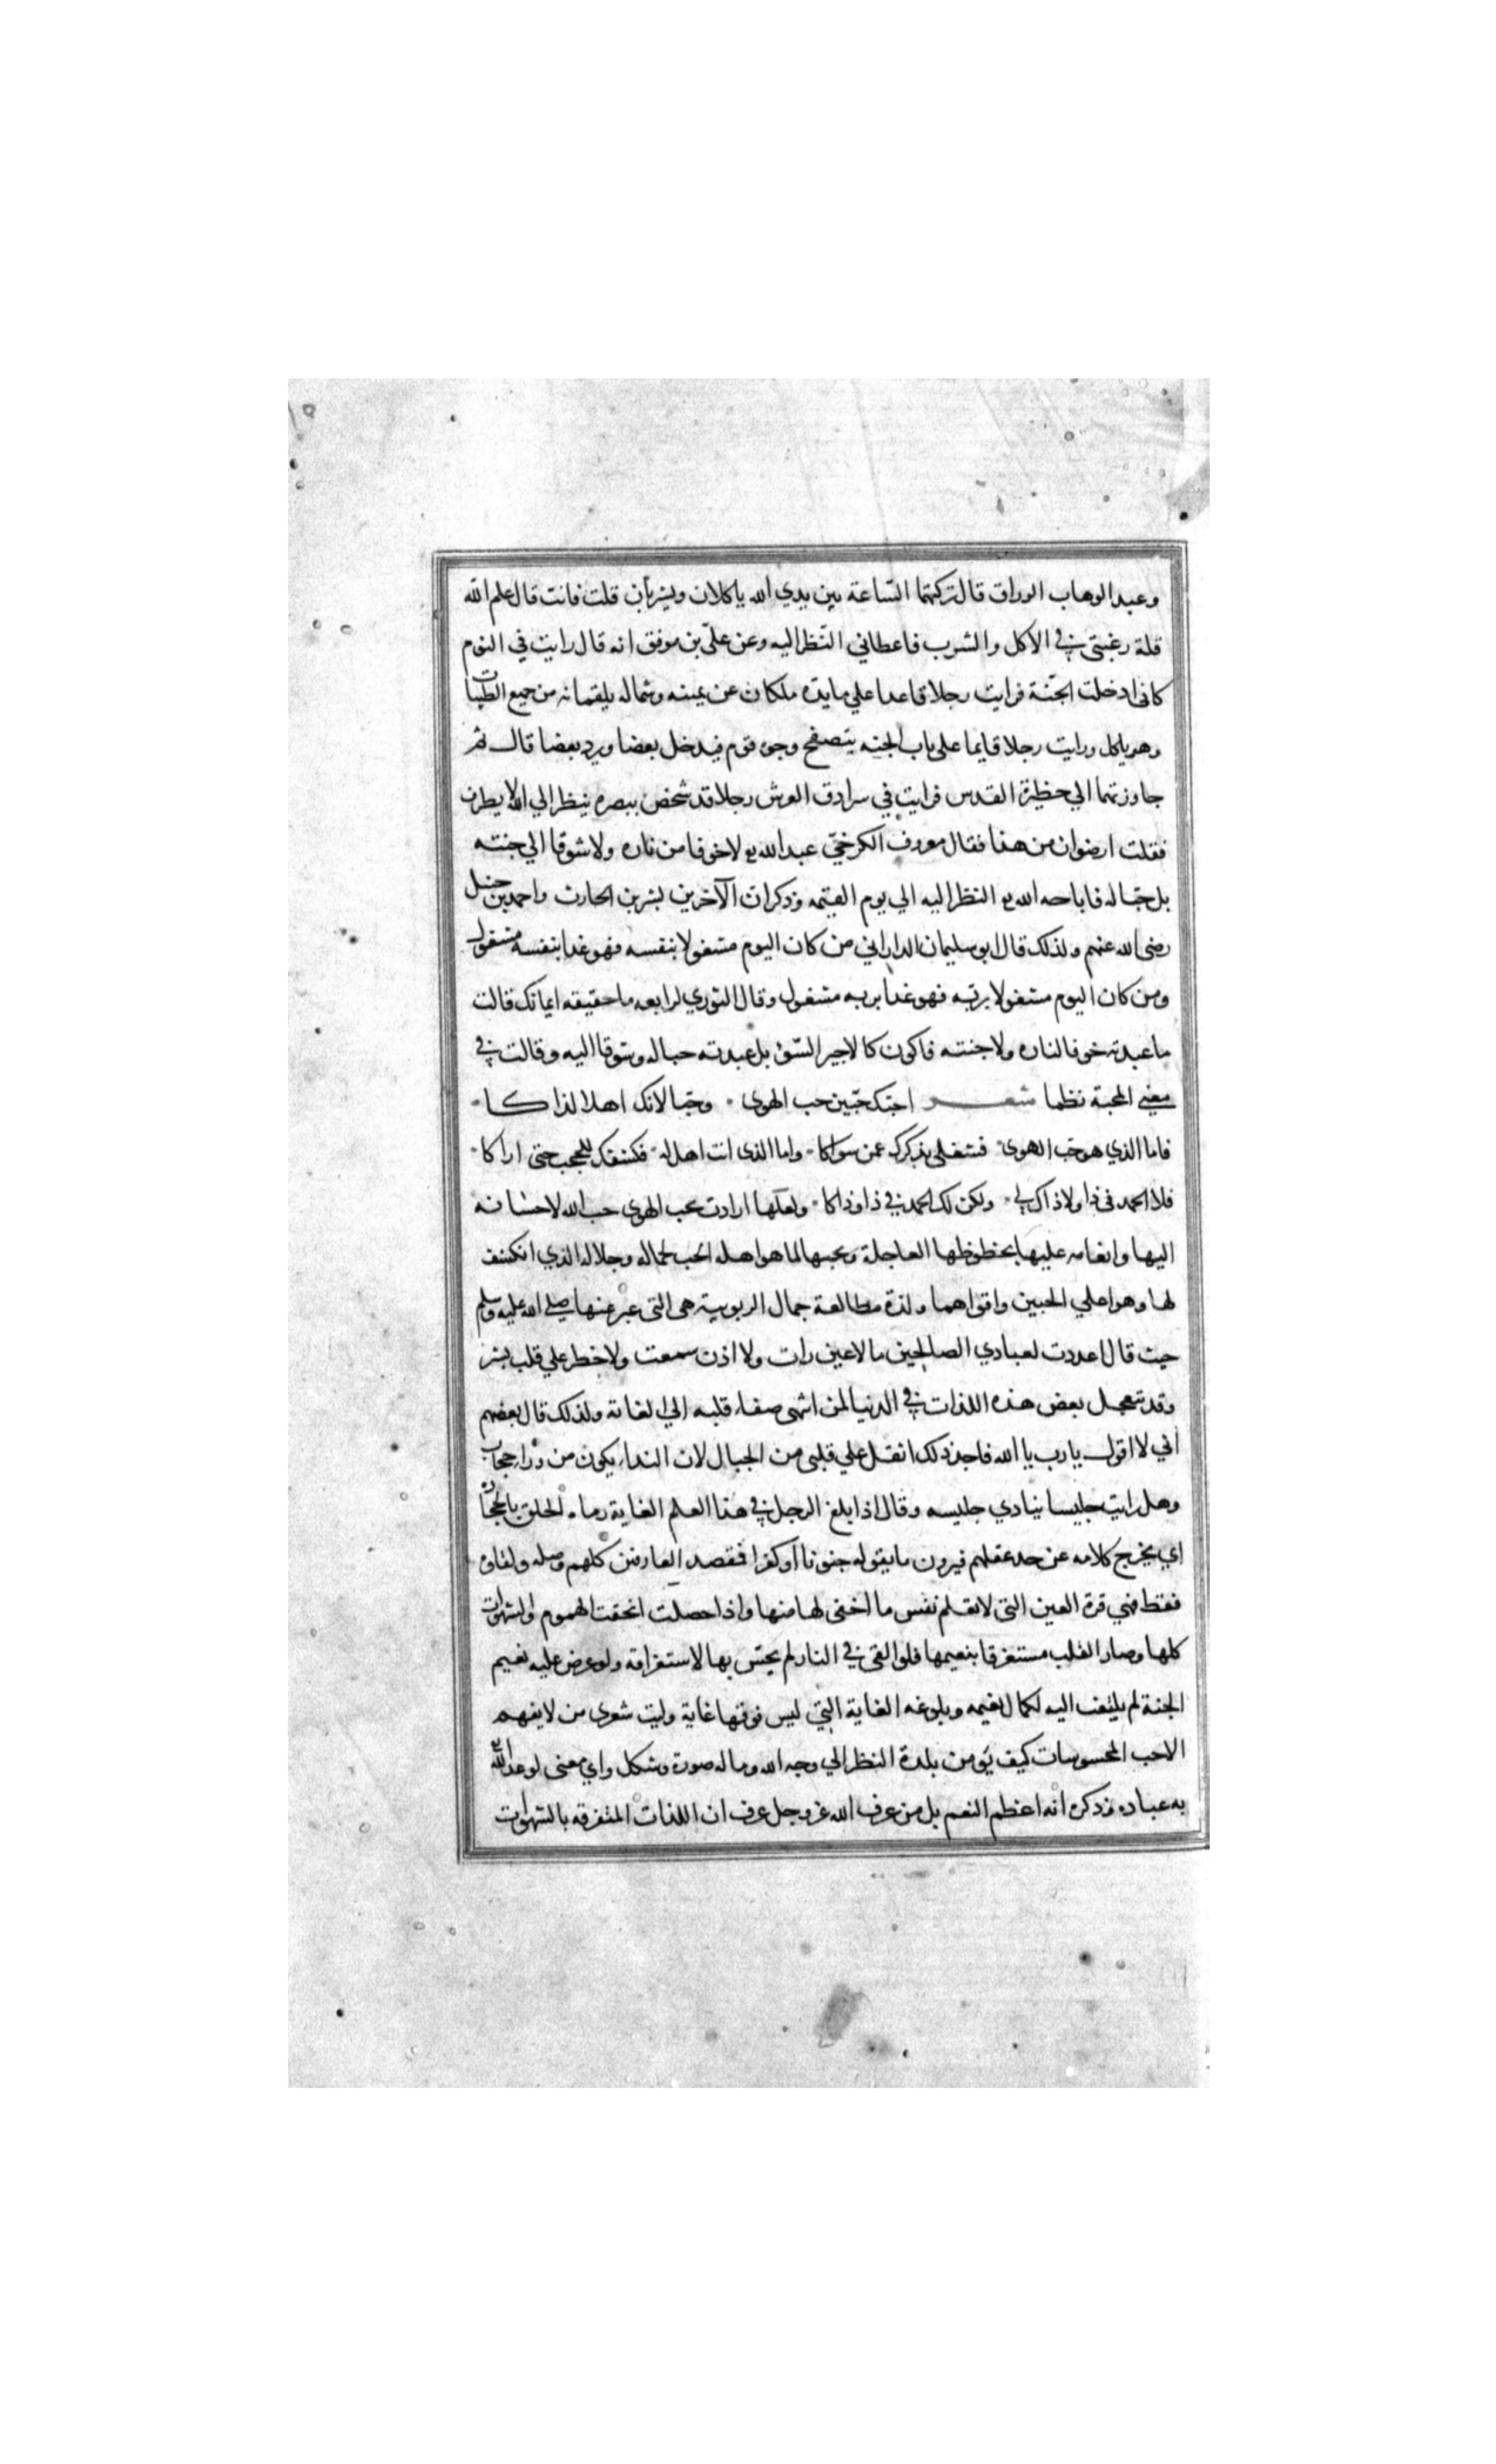 وعبد الوهاب الوراق قال تركتهما الساعة بين يدي الله ياكلان ويشربان قلت فانت قال علم الله
قلة رغبتي في الاكل والشرب فاعطاني النظر اليه وعن علي بن موفق انه قال رايت في النوم
كاني ادخلت الجنة فرايت رجلا قاعدا علي مايده ملكان عن يمينه وشماله يلقمانه من جميع الطيبات
وهو ياكل ورايت رجلا قايما على باب الجنه يتصفح وجوه قوم فيدخل بعضا ويرد بعضا قال ثم
جاوزتهما الي حظيرة القدس فرايت في سرادق العرش رجلا قد شخص ببصره ينظر الي الله لا يطرف
فقلت لرضوان من هذا فقال معروف الكرخي عبد الله تع لا خوفا من ناره ولا شوقا الي جنته
بل حبا له فاباحه الله تع النظر اليه الي يوم القيمه وذكر ان الآخرين بشر بن الحارث واحمد بن حنبل
رضى الله عنهم ولذلك قال ابو سليمان الداراني من كان اليوم مشغولا بنفسه فهو غدا بنفسه مشغول
ومن كان اليوم مشغولا بربه فهو غدا بربه مشغول وقال الثوري لرابعه ما حقيقه ايمانك قالت
ما عبدته خوفا لناره ولا جنته فاكون كالاجير السؤ بل عبدته حبا له وشوقا اليه وقالت في
معني المحبة نظما شعر احبك حبين حب الهوى وحبا لانك اهلا لذاكا
فاما الذي هو حب الهوى فشغلي بذكرك عمن سواكا واما الذي انت اهل له فكشفك للحجب حتى اراكا
فلا الحمد في ذا ولا ذاك لي ولكن لك الحمد في ذا وذاكا ولعلها ارادت بحب الهوى حب الله لاحسانه
اليها وانعامه عليها بحظوظها العاجلة وبحبها لما هو اهله الحب لجماله وجلاله الذي انكشف
لها وهو اعلي الحبين واقواهما ولذة مطالعة جمال الربوبية هى التى عبر عنها صلى الله عليه وسلم
حيث قال اعددت لعبادي الصالحين ما لا عين رات ولا اذن سمعت ولا خطر علي قلب بشر
وقد تتعجل بعض هذه اللذات في الدنيا لمن انتهى صفاء قلبه الي الغاية ولذلك قال بعضهم
اني لا اقول يا رب يا الله فاجد ذلك اثقل علي قلبى من الجبال لان النداء يكون من وراء حجاب
وهل رايت جليسا ينادي جليسه وقال اذا بلغ الرجل في هذا العلم الغاية رماه الخلق بالحجارة
اي يخرج كلامه عن حد عقلهم فيرون ما يقوله جنونا او كفرا فقصد العارفين كلهم وصله ولقاؤه
فقط فهي قرة العين التى لا تعلم نفس ما اخفى لها منها واذا حصلت انمحقت الهموم والشهوات
كلها وصار القلب مستغرقا بنعيمها فلو القى في النار لم يحس بها لاستغراقه ولو عرض عليه نعيم
الجنة لم يلتفت اليه لكمال نعيمه وبلوغه الغاية التي ليس فوقها غاية وليت شعرى من لا يفهم
الا حب المحسوسات كيف يؤمن بلذة النظر الي وجه الله وما له صورة وشكل واي معنى لوعد الله تع
به عباده وذكره انه اعظم النعم بل من عرف الله عز وجل عرف ان اللذات المتفرقه بالشهوات